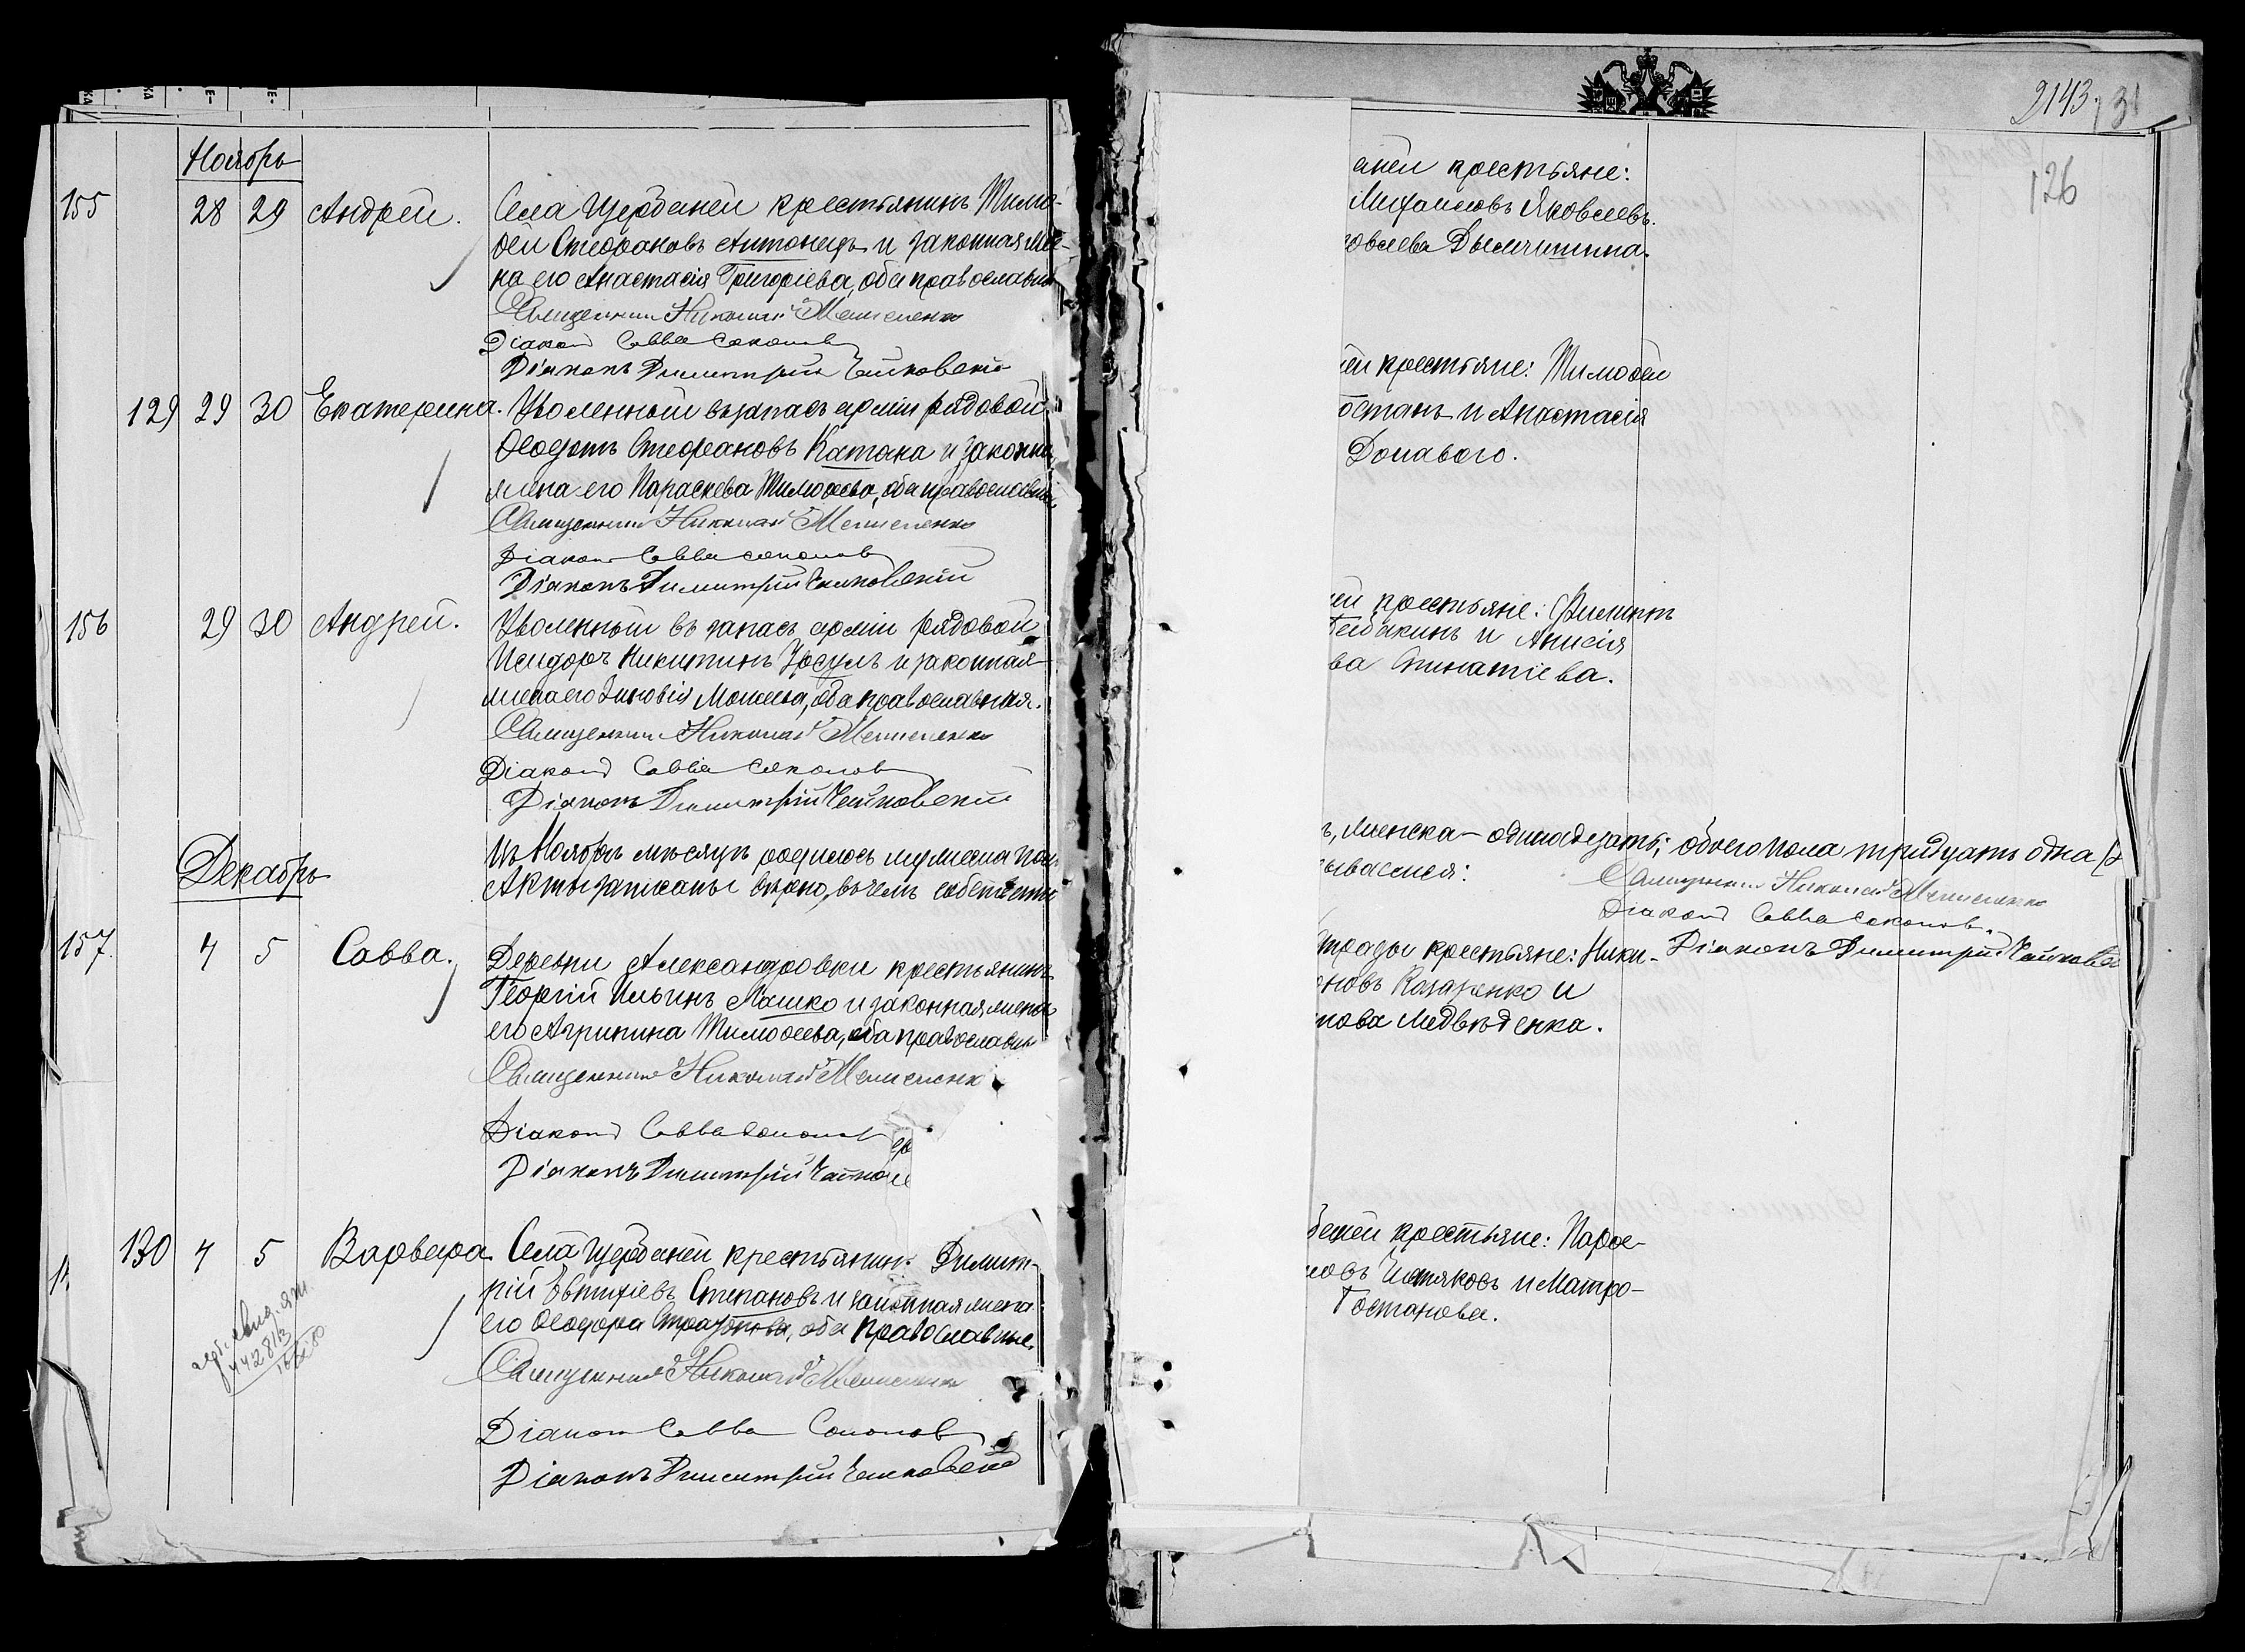 Ноябрь
155 28 29 Андрей. Села Щербаней крестьянинъ Тимо-
ѳей Стефановъ Антонецъ и законная же-
на его Анастасія Григоріева, оба православные
Священникъ Николай
Діаконъ Савва Соколовъ
Діаконъ Димитрій Чайковскій
129 29 30 Екатерина. Уволенный въ запасъ арміи рядовой
Ѳеодотъ Стефановъ Катана и законная
жена его Параскева Тимоѳеева, оба православные
Священникъ Николай
Діаконъ Савва Соколовъ
Діаконъ Димитрій Чайковскій
156 29 30 Андрей. Уволенный въ запасъ арміи рядовой
Исидоръ Никитинъ Урсулъ и законная
жена его Зиновія Моисеева, оба православная.
Священникъ Николай
Діаконъ Савва Соколовъ
Діаконъ Димитрій Чайковскій
Въ Ноябрѣ мѣсяцѣ родилось мужеска пол
Декабрь
Акты записаны вѣрно, въ чемъ
157. 4 5 Савва. Деревни Александровки крестьянинъ
Георгій Ильинъ Лашко и законная жена
его Агрипина Тимоѳеева, оба православные
Священникъ Николай
Діаконъ Савва Соколовъ
Діаконъ Димитрій
130 4 5 Варвара. Села Щербаней крестьянинъ Димит-
рій Евтихіевъ Степановъ и законная жена
его Ѳеодора, оба православные.
Священникъ Николай
Діаконъ Савва Соколовъ
Діаконъ Димитрій Чайковскій
2143
131
126
аней крестьяне:
Яковлевъ.
овлева
ей крестьяне: Тимоѳей
останъ и Анастасія
Донавого.
ей крестьяне: Филиппъ
и Анисія
ва Игнатіева.
ъ, женска – одинадцать; обоего пола тридцать одна
ываемся:
Священникъ Николай
Діаконъ Савва Соколовъ.
Отрады крестьяне: Ники- Діаконъ Димитрій
новъ Казаренко и
нова Медвѣденка.
баней крестьяне: Парѳе-
новъ и Матро-
Гостанова.